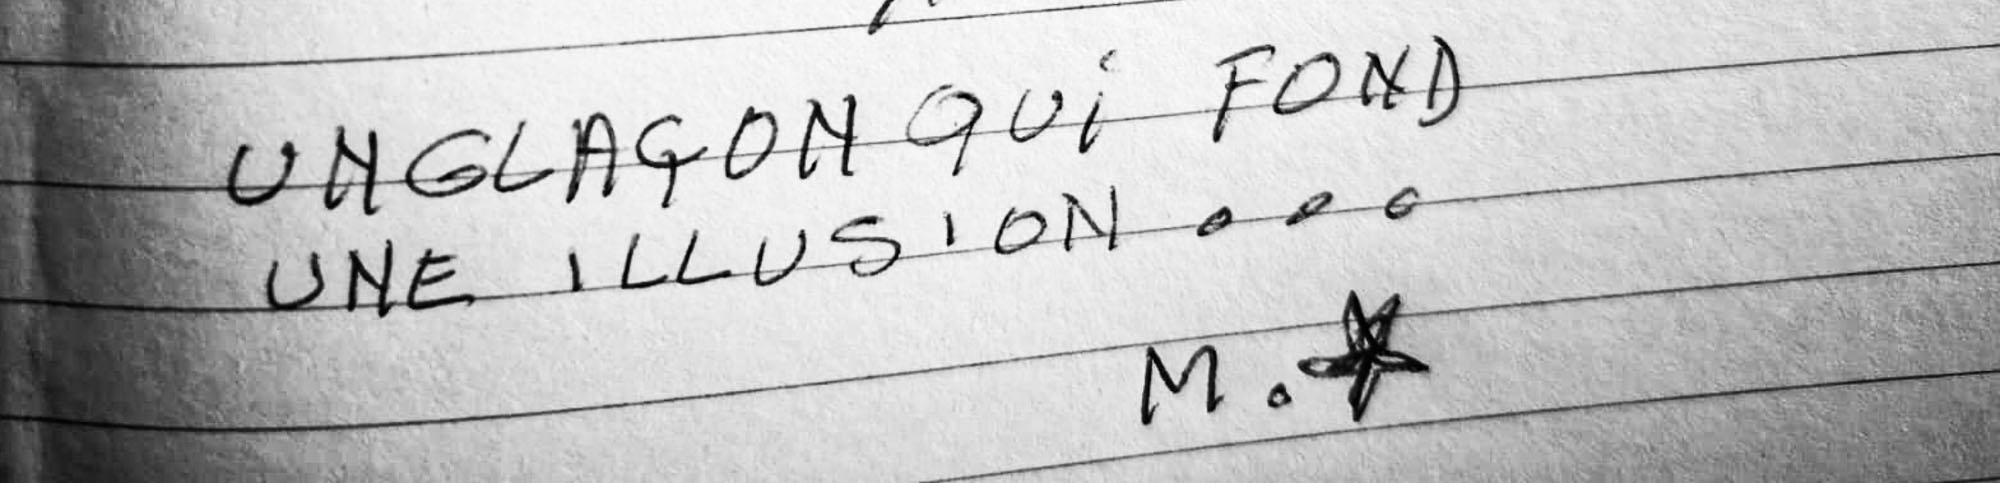 UN GLAÇON QUi FOND
UNE ILLUSION...
M.